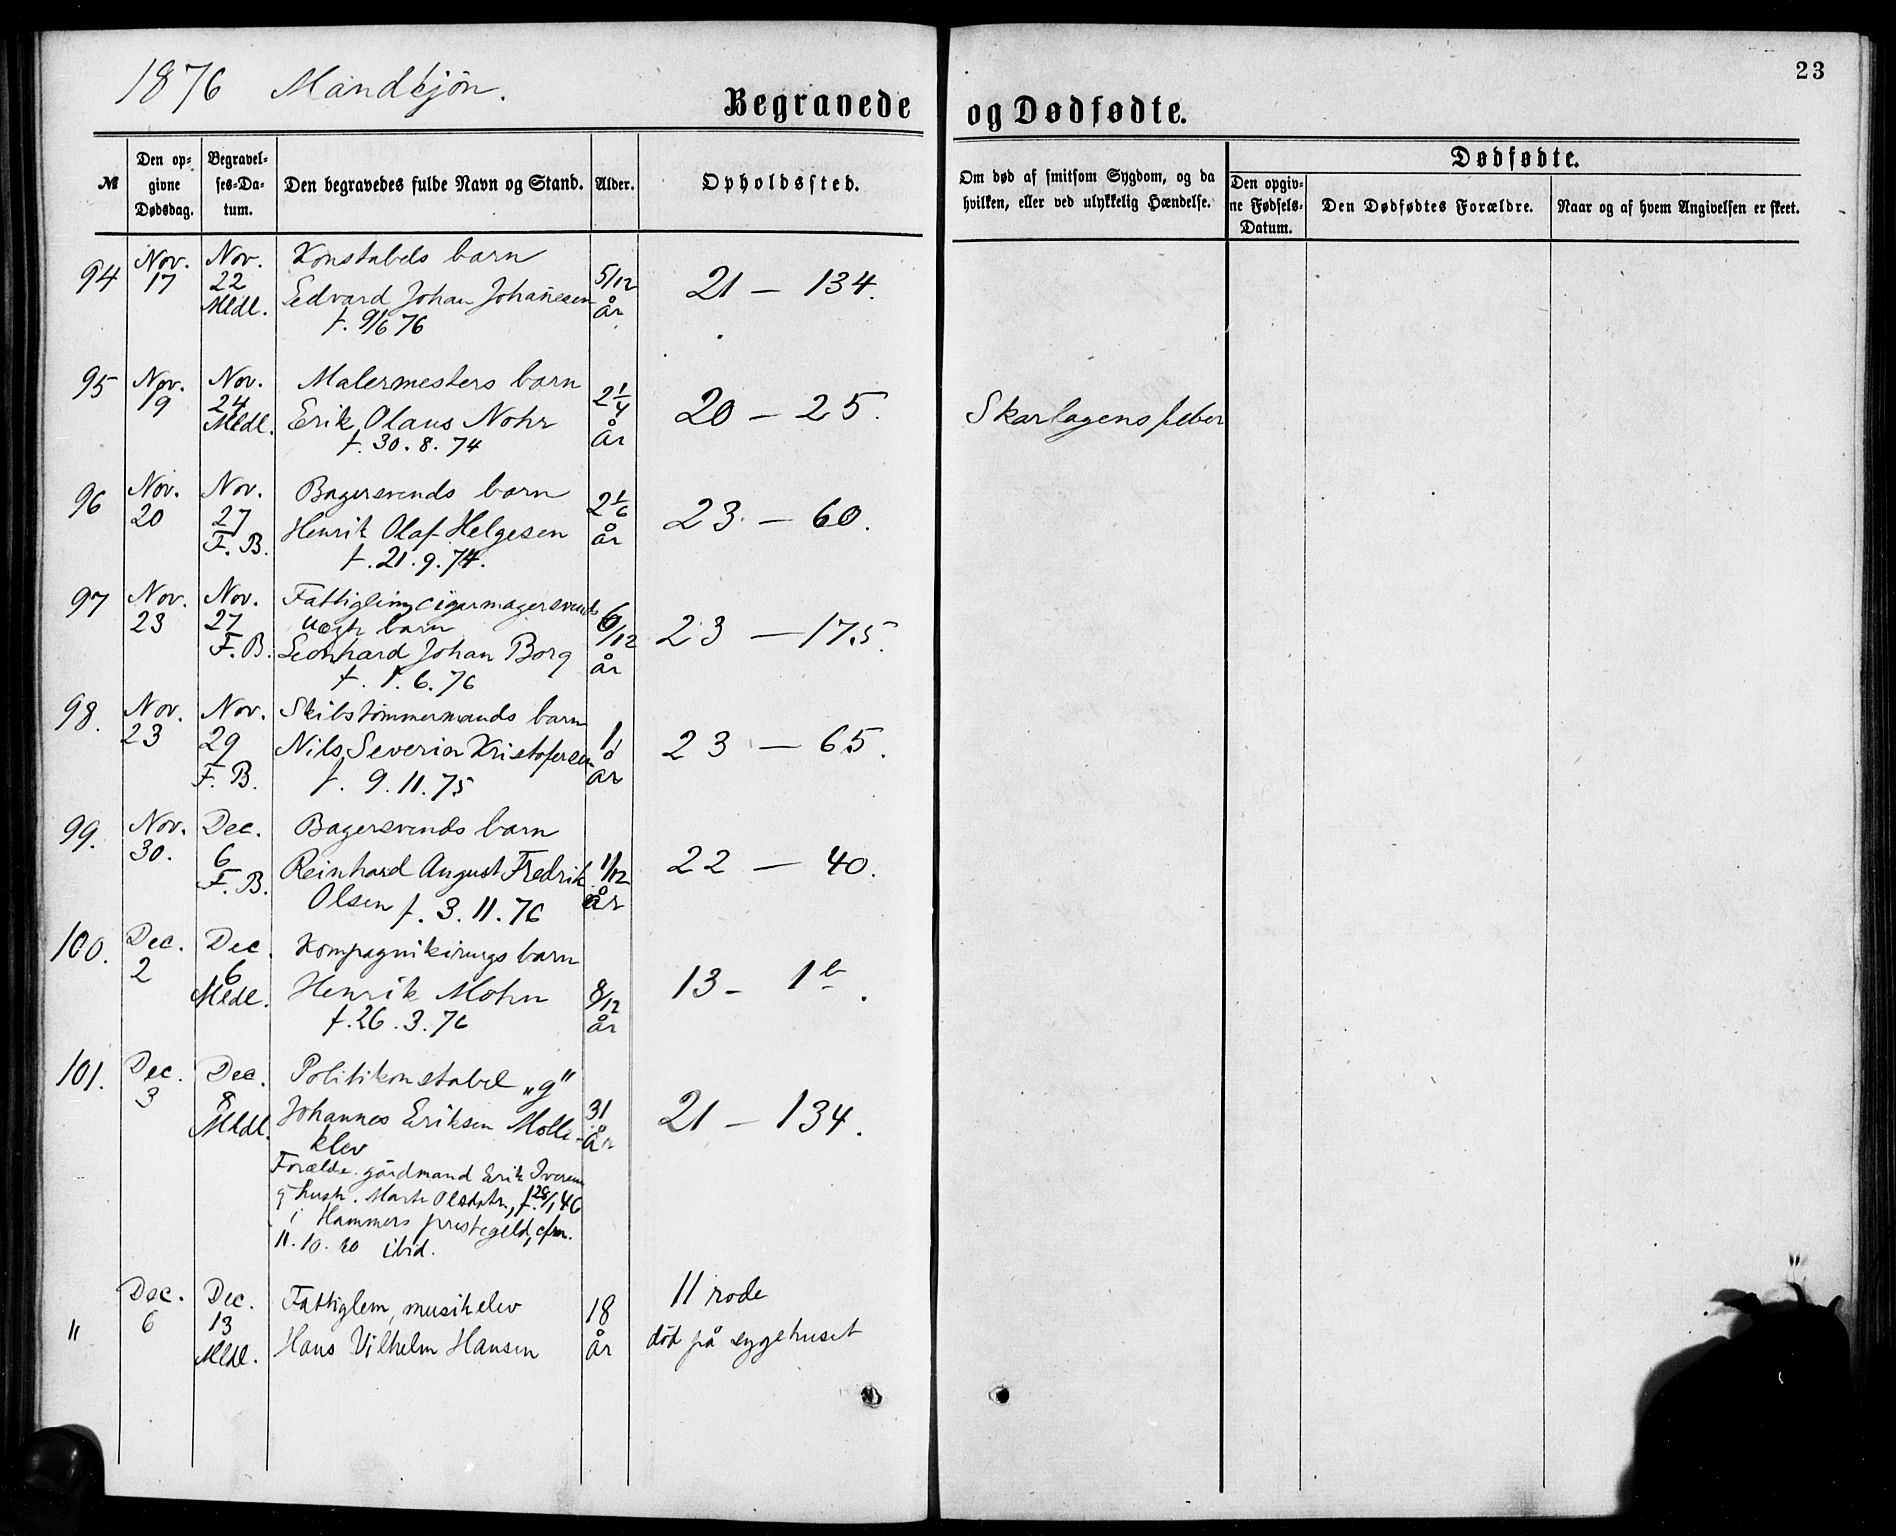 1876 Mandkjön.
Begravede og Dødfødte.
23
№
Den op-
givne
Dødsdag.
Begravel-
ses-Da-
tum.
Den begravedes fulde Navn og Stand.
Alder.
Opholdssted.
Om død af smitsom Sygdom, og da
hvilken, eller ved ulykkelig Hændelse.
Dødfødte.
Den opgiv-
ne Fødsels-
Datum.
Den Dødfødtes Forældre.
Naar og af hvem Angivelsen er skeet.
94
Nov.
17
Nov.
22
Mldl.
Konstabels barn
Edvard Johan Johannesen
f. 9/6 76
5/12
år
21 — 134.
95
Nov.
19
Nov.
24
Mldl.
Malermesters barn
Erik Olaus Nohr
f. 30. 8. 74
2 1/4
år
20 — 25.
Skarlagensfeber
96
Nov.
20
Nov.
27
F. B.
Bagersvends barn
Henrik Olaf Helgesen
f. 21. 9. 74.
2 1/6
år
23 — 60.
97
Nov.
23
Nov.
27
F. B.
Fattiglem, cigarmagersvends
uegte barn
Leonhard Johan Borg
f. 1. 6. 76
6/12
år
23 — 175.
98.
Nov.
23
Nov.
29
F. B.
Skibstömmermands barn
Nils Severin Kristofersen
f. 9. 11. 75
1
år
23 — 65.
99.
Nov.
30.
Dec.
6
F. B.
Bagersvends barn
Reinhard August Fredrik
Olsen f. 3. 11. 76
1/12
år
22 — 40.
100.
Dec.
2
Dec.
6
Mldl.
Kompagnikirurgs barn
Henrik Mohn
f. 26. 3. 76
8/12
år
13 — 1 b.
101.
Dec.
3
Dec.
8
Mldl.
Politikonstabel „g"
Johannes Eriksen Molle-
klev
Forældre gårdmand Erik Iversen
g hustr. Marte Olsdatr, f. 28/1 46
i Hammers prestegeld, cfm.
11. 10. 60 ibid.
31
år
21 — 134.
"
Dec.
6
Dec.
13
Mldl.
Fattiglem, musikelev
Hans Vilhelm Hansen
18
år
11 rode
död på sygehuset